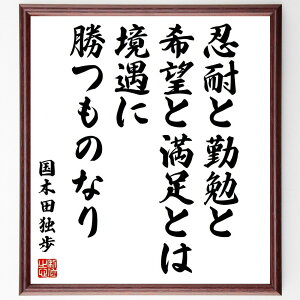 忍耐と勤勉と
希望と満足とは
境遇に
勝つものなり
国木田独歩